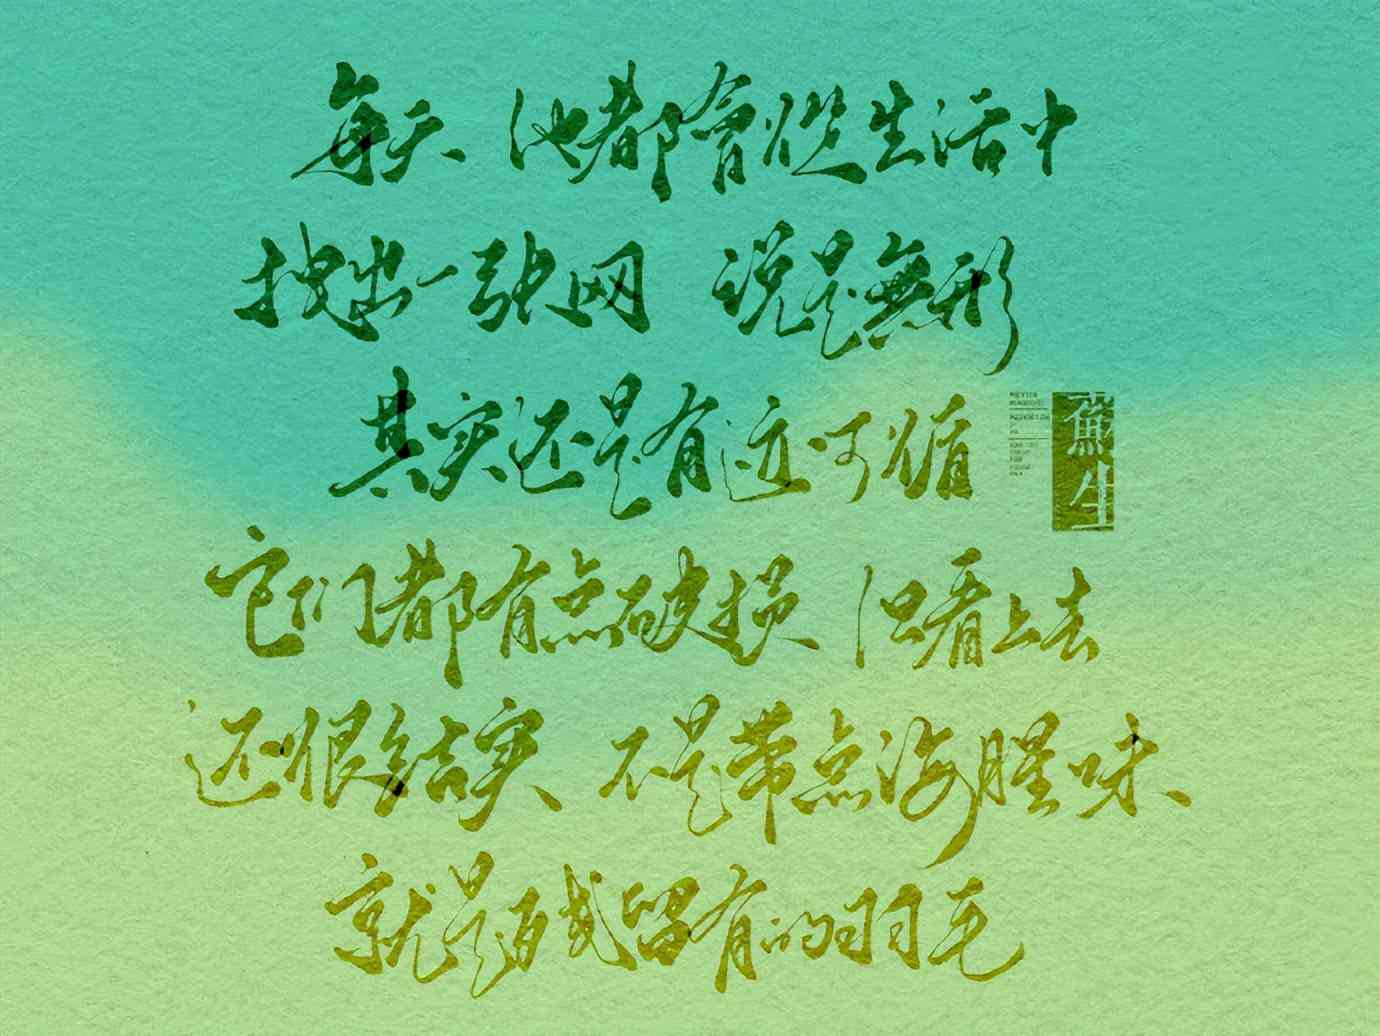 每天 他都會從生活中
拽出一张网 说是無形
其实还是有迹可循
蘇生
它们都有点破损 但看上去
还很结实 不是带点海腥味
就是残留有的羽毛